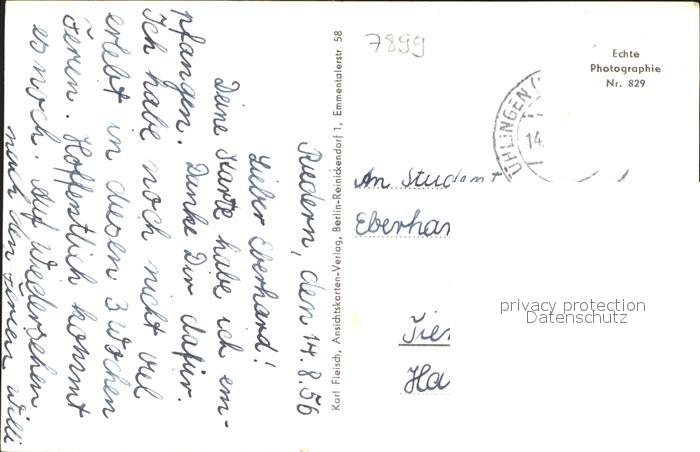 Riedern, den 14.8.56
Lieber Eberhard!
Deine Karte habe ich em-
pfangen. Danke Dir dafür.
Ich habe noch nicht viel
erlebt in diesen 3 Wochen
Ferien. Hoffentlich kommt
es noch. Auf Wiedersehen
nach den Ferien Willi
Karl Fleisch, Ansichtskarten-Verlag, Berlin-Reinickendorf 1, Emmentalerstr. 58
7899
Echte
Photographie
Nr. 829
ÜHLINGEN
14.
An Student
Eberhar
Tien
Ha
privacy protection
Datenschutz